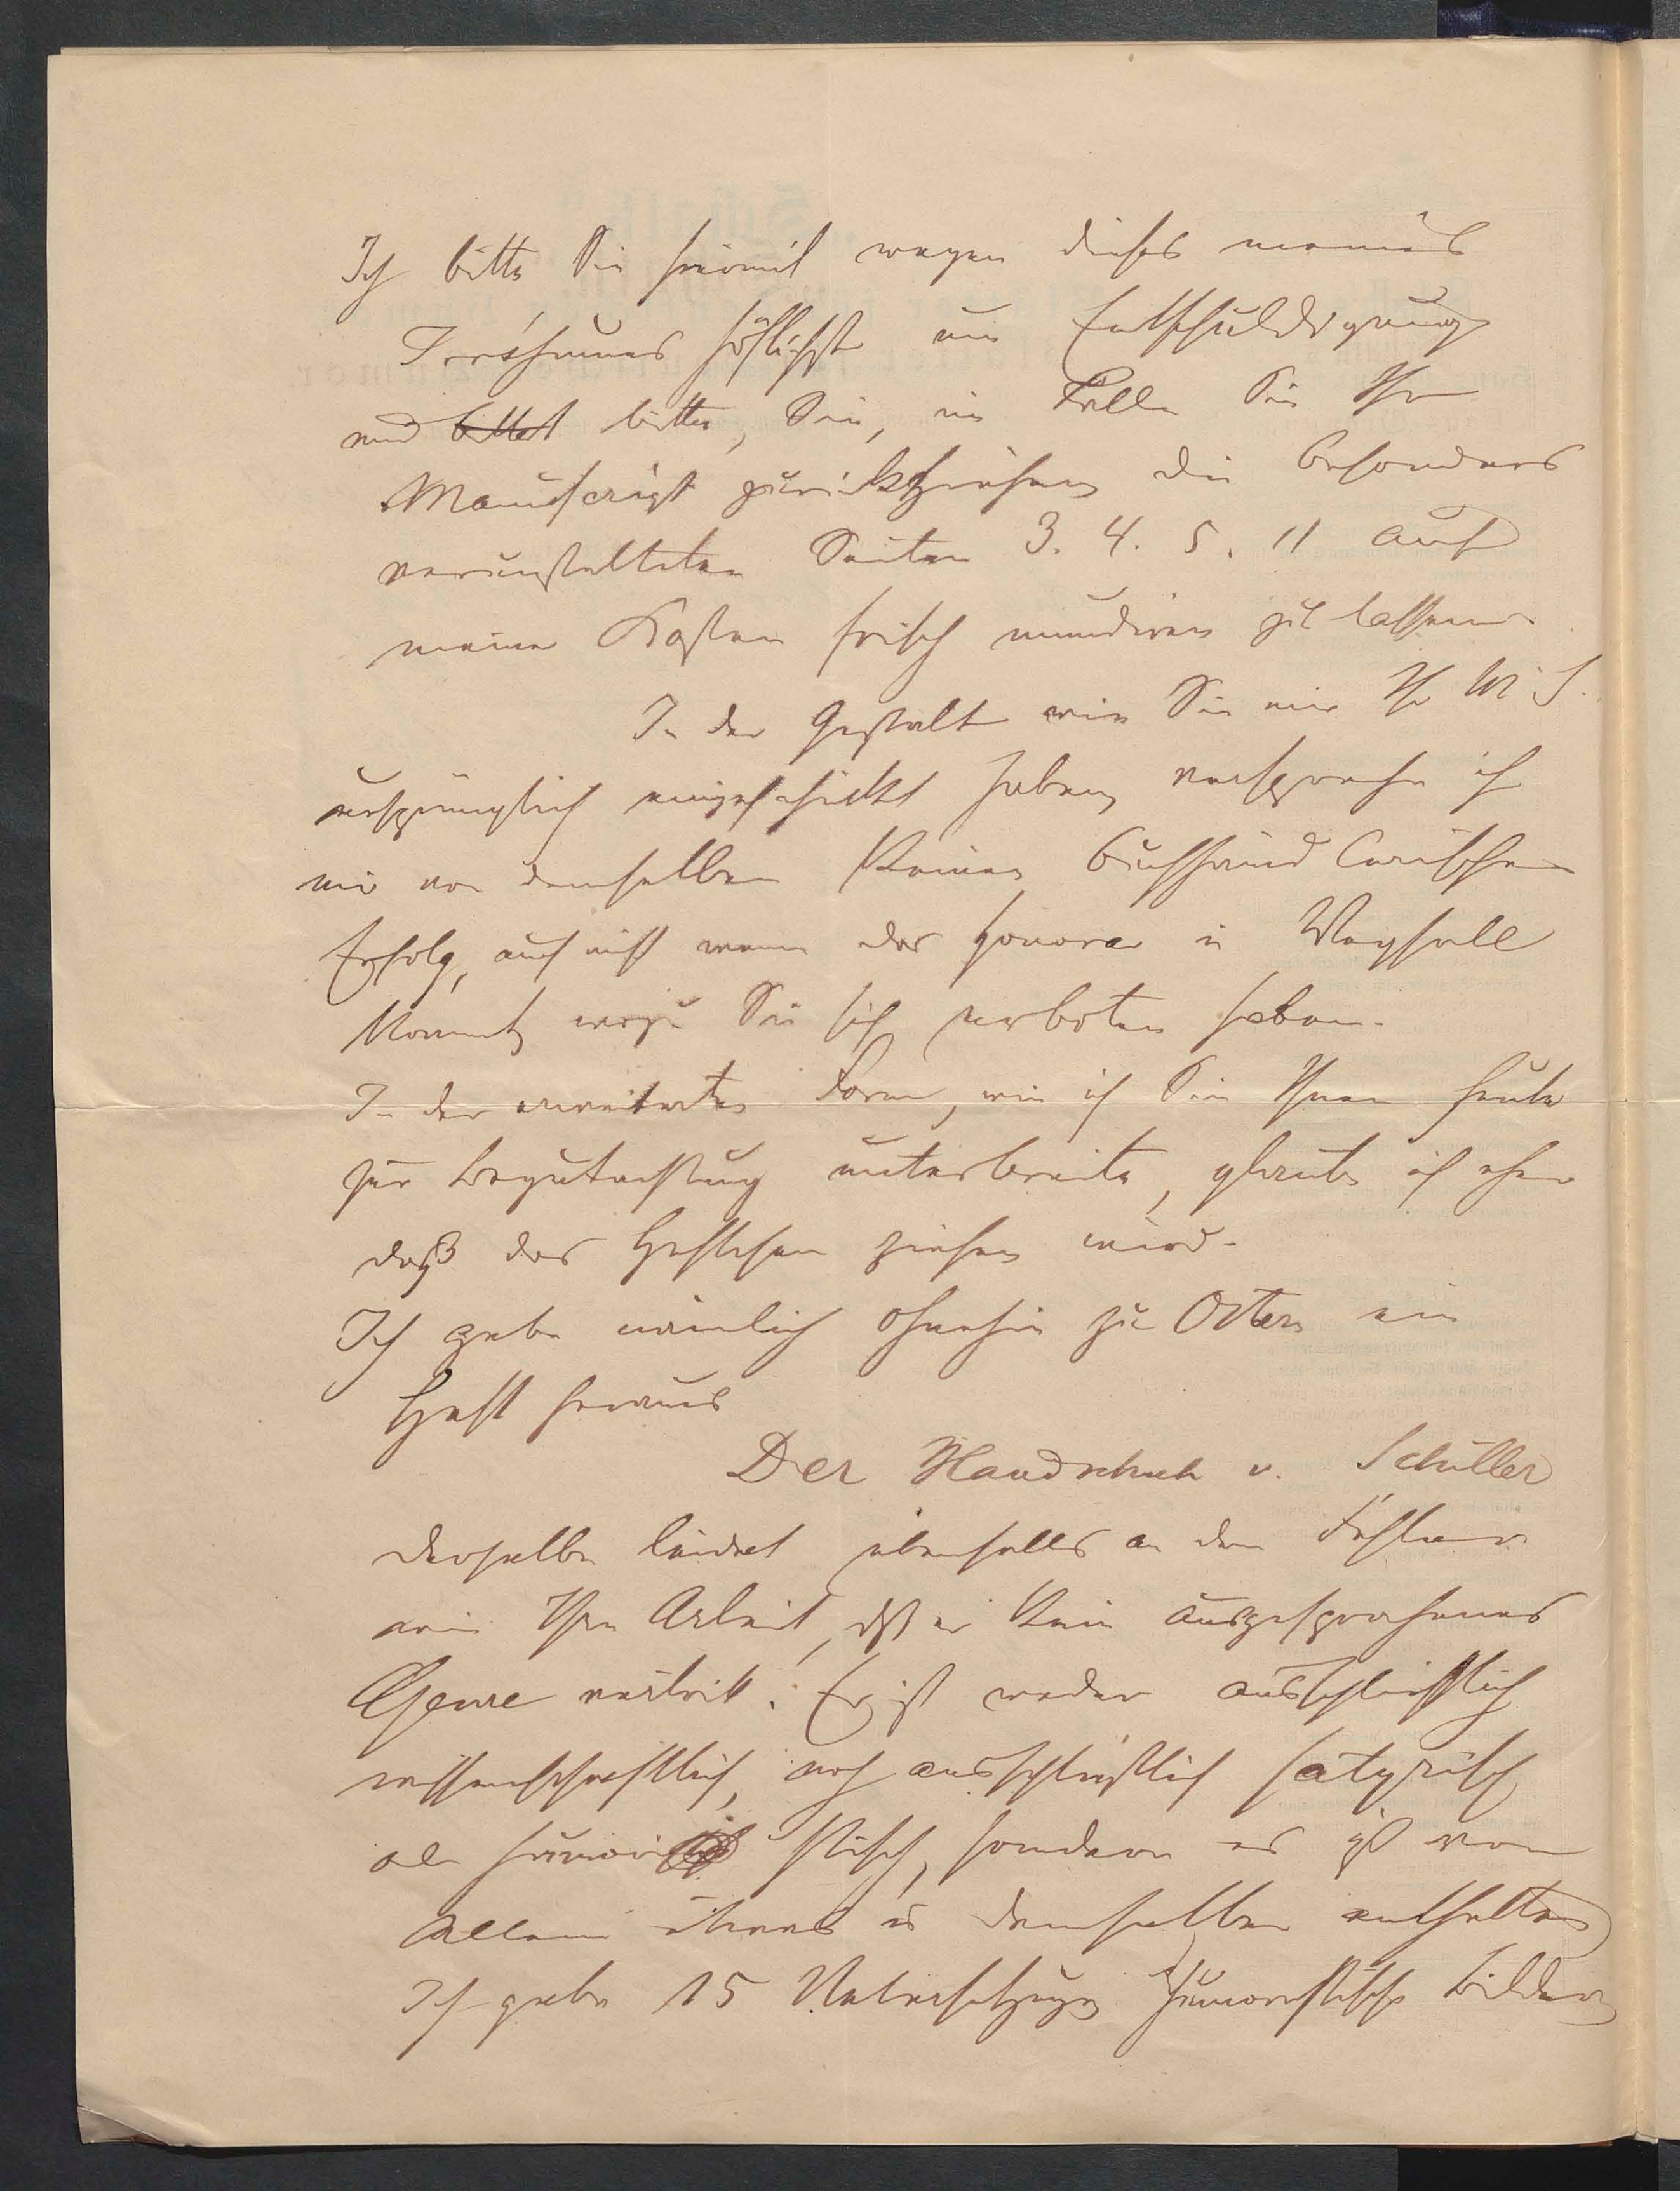 Ich bitte Sie hiermit wegen dieses meines
Irrthumes höflichst um Entschuldigung
und bittet bitte, Sie, im Falle Sie Ihr
Manuscript zurückziehen die besonders
verunstalteten Seiten 3. 4. 5. 11 auf
meine Kosten frisch mundiren zu lassen.
In der Gestalt wie Sie mir Ihr M. S.
ursprünglich eingeschickt haben, verspreche ich
mir von demselben keinen buchhändlerischen
Erfolg, auch nicht wenn das Honorar in Wegfall
kommt, wozu Sie sich erboten haben.
In der erweiterten Form, wie ich Sie Ihnen heute
zur Begutachtung unterbreite, glaube ich eher
daß das Heftchen ziehen wird.
Ich gebe nämlich ohnehin zu Ostern ein
Heft heraus
Der Handschuh v. Schiller
derselbe leidet ebenfalls an dem Fehler
wie Ihre Arbeit, daß er kein ausgesprochenes
Genre vertritt. Er ist weder ausschließlich
wissenschaftlich, noch ausschließlich satyrisch
oder humoristisch, sondern es ist von
Allem etwas in demselben enthalten
Ich gebe 15 Uebersetzungen humoristische Bilder